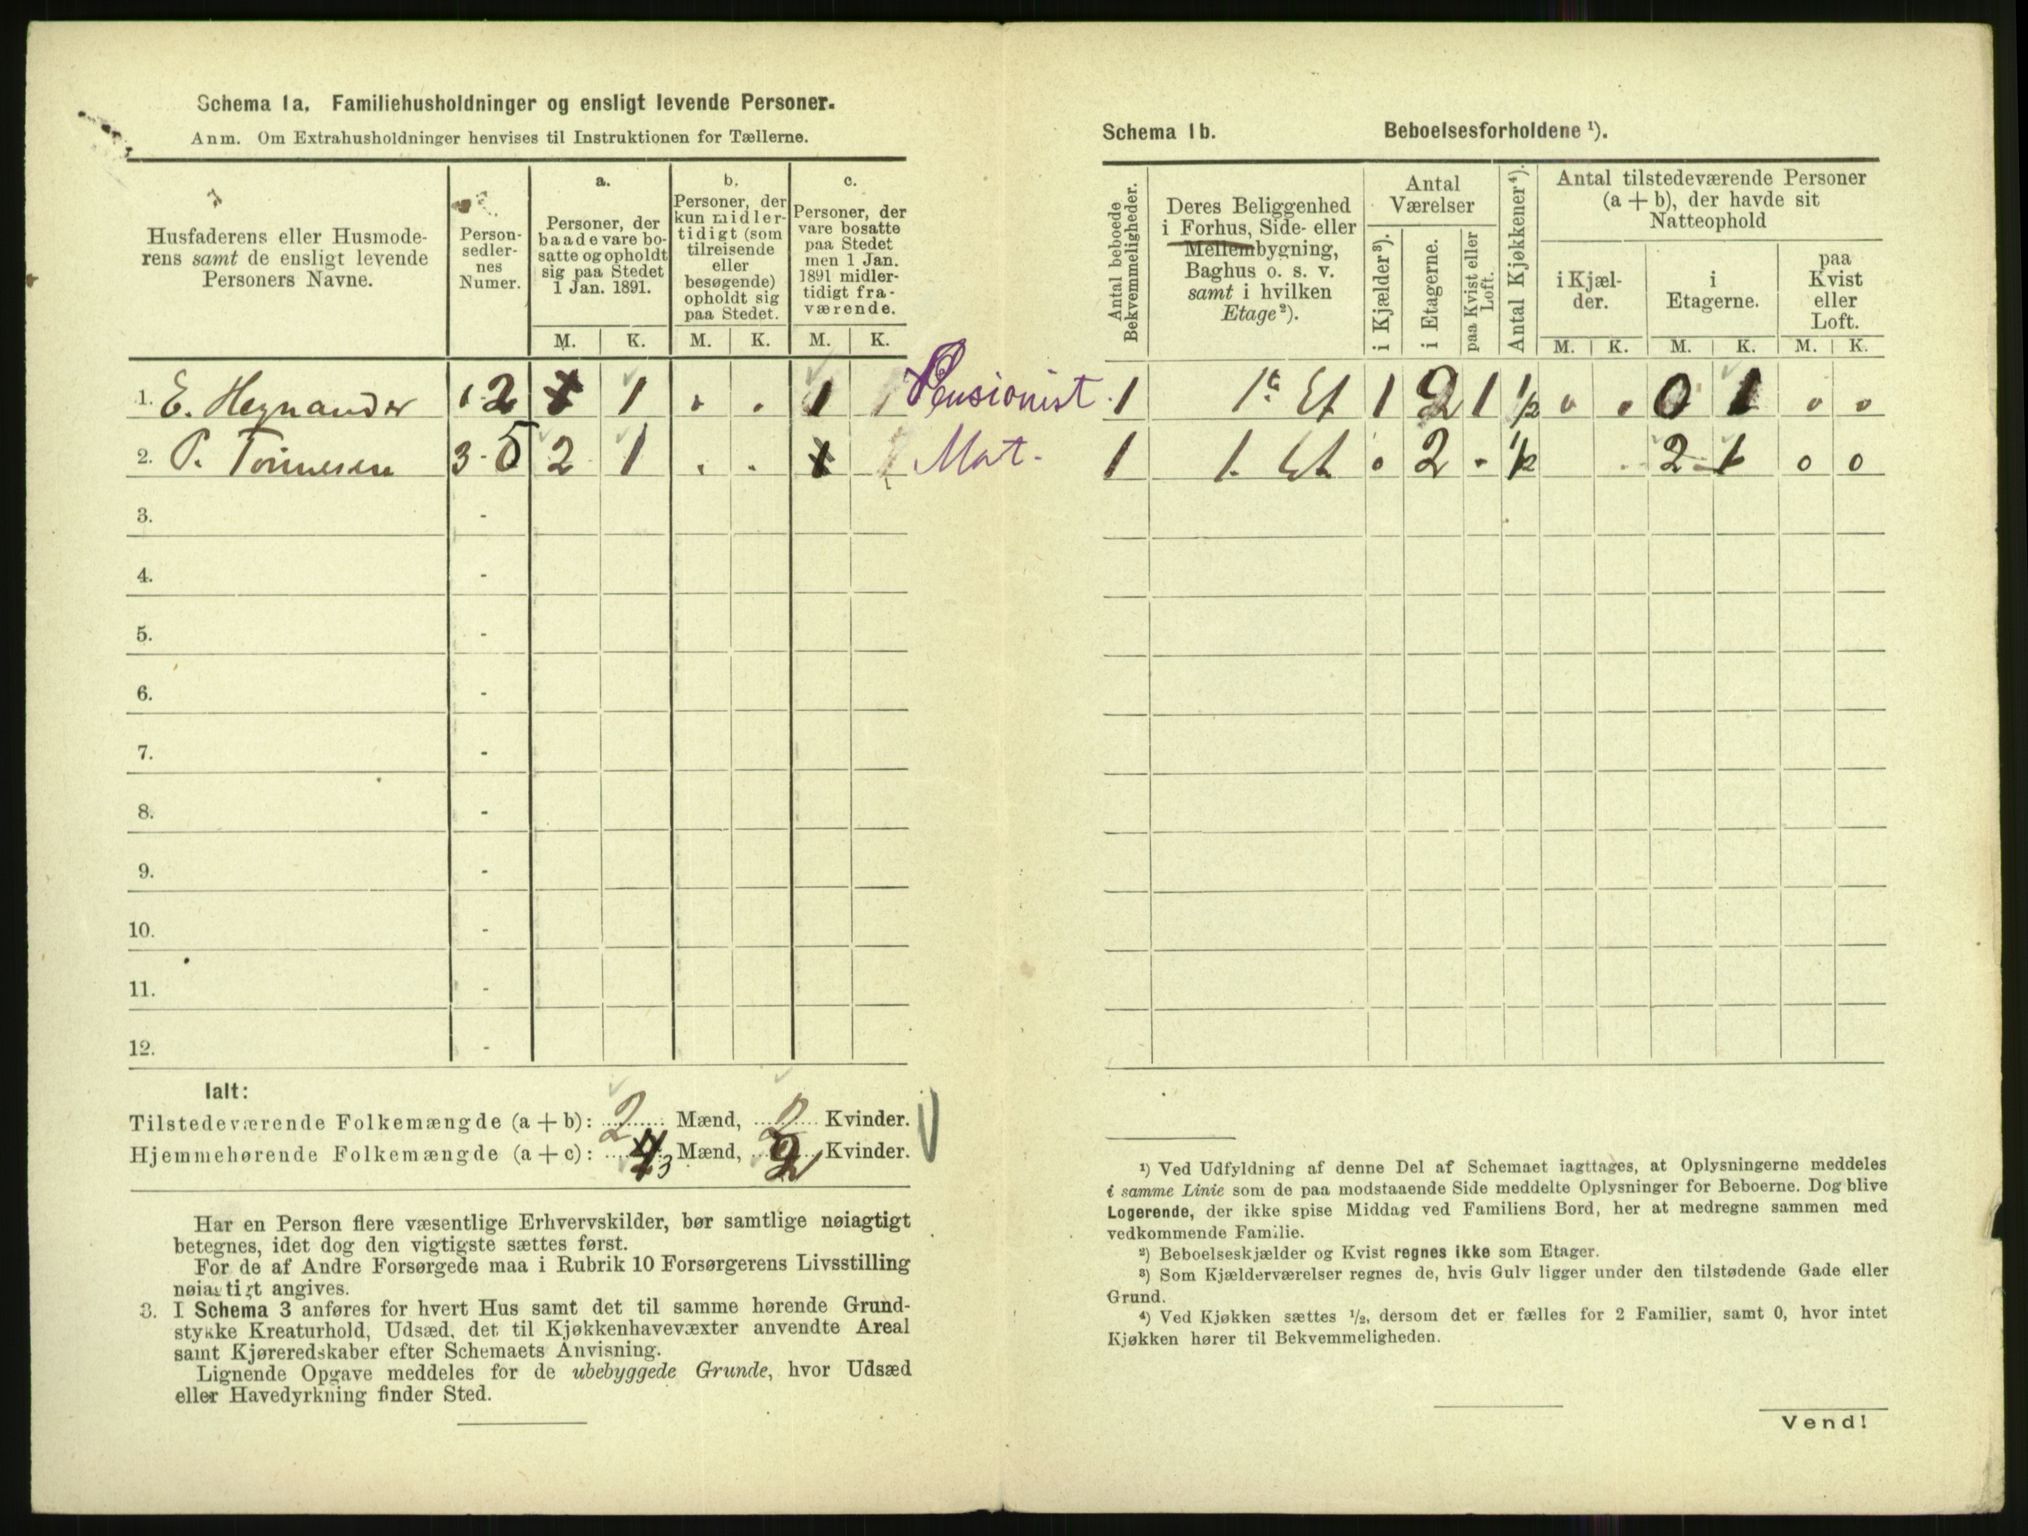 Schema 1a. Familiehusholdninger og ensligt levende Personer.
Anm. Om Extrahusholdninger henvises til Instruktionen for Tællerne.
Husfaderens eller Husmode-
rens samt de ensligt levende
Personers Navne.
Person-
sedler-
nes
Numer.
a.
Personer, der
baade vare bo-
satte og opholdt
sig paa Stedet
1 Jan. 1891.
b.
Personer, der
kun midler-
tidigt (som
tilreisende
eller
besøgende)
opholdt sig
paa Stedet.
c.
Personer, der
vare bosatte
paa Stedet
men 1 Jan.
1891 midler-
tidigt fra-
værende.
M. K. M. K. M. K.
1. E. Heynander 1-2 1 . . 1 Pensionist
2. P. Tönnesen 3-5 2 1 . . Mat.
3. -
4. -
5. -
6. -
7. -
8. -
9. -
10. -
11. -
12. -
Ialt:
Tilstedeværende Folkemængde (a + b): 2 Mænd, 2 Kvinder.
Hjemmehørende Folkemængde (a + c): 3 Mænd, 2 Kvinder.
Har en Person flere væsentlige Erhvervskilder, bør samtlige nøiagtigt
betegnes, idet dog den vigtigste sættes først.
For de af Andre Forsørgede maa i Rubrik 10 Forsørgerens Livsstilling
nøiagtigt angives.
3. I Schema 3 anføres for hvert Hus samt det til samme hørende Grund-
stykke Kreaturhold, Udsæd, det til Kjøkkenhavevæxter anvendte Areal
samt Kjøreredskaber efter Schemaets Anvisning.
Lignende Opgave meddeles for de ubebyggede Grunde, hvor Udsæd
eller Havedyrkning finder Sted.
Schema 1b. Beboelsesforholdene ¹).
Antal beboede
Bekvemmeligheder.
Deres Beliggenhed
i Forhus, Side- eller
Mellembygning,
Baghus o. s. v.
samt i hvilken
Etage ²).
Antal
Værelser
i Kjælder ³).
i Etagerne.
paa Kvist eller
Loft.
Antal Kjøkkener ⁴).
Antal tilstedeværende Personer
(a + b), der havde sit
Natteophold
i Kjæl-
der.
i
Etagerne.
paa
Kvist
eller
Loft.
M. K. M. K. M. K.
1 1e Et 1 2 1 1/2 0 . 0 1 0 0
1 1. Et . 2 . 1/2 . 2 1 0 0
¹) Ved Udfyldning af denne Del af Schemaet iagttages, at Oplysningerne meddeles
i samme Linie som de paa modstaaende Side meddelte Oplysninger for Beboerne. Dog blive
Logerende, der ikke spise Middag ved Familiens Bord, her at medregne sammen med
vedkommende Familie.
²) Beboelseskjælder og Kvist regnes ikke som Etager.
³) Som Kjælderværelser regnes de, hvis Gulv ligger under den tilstødende Gade eller
Grund.
⁴) Ved Kjøkken sættes 1/2, dersom det er fælles for 2 Familier, samt 0, hvor intet
Kjøkken hører til Bekvemmeligheden.
Vend!